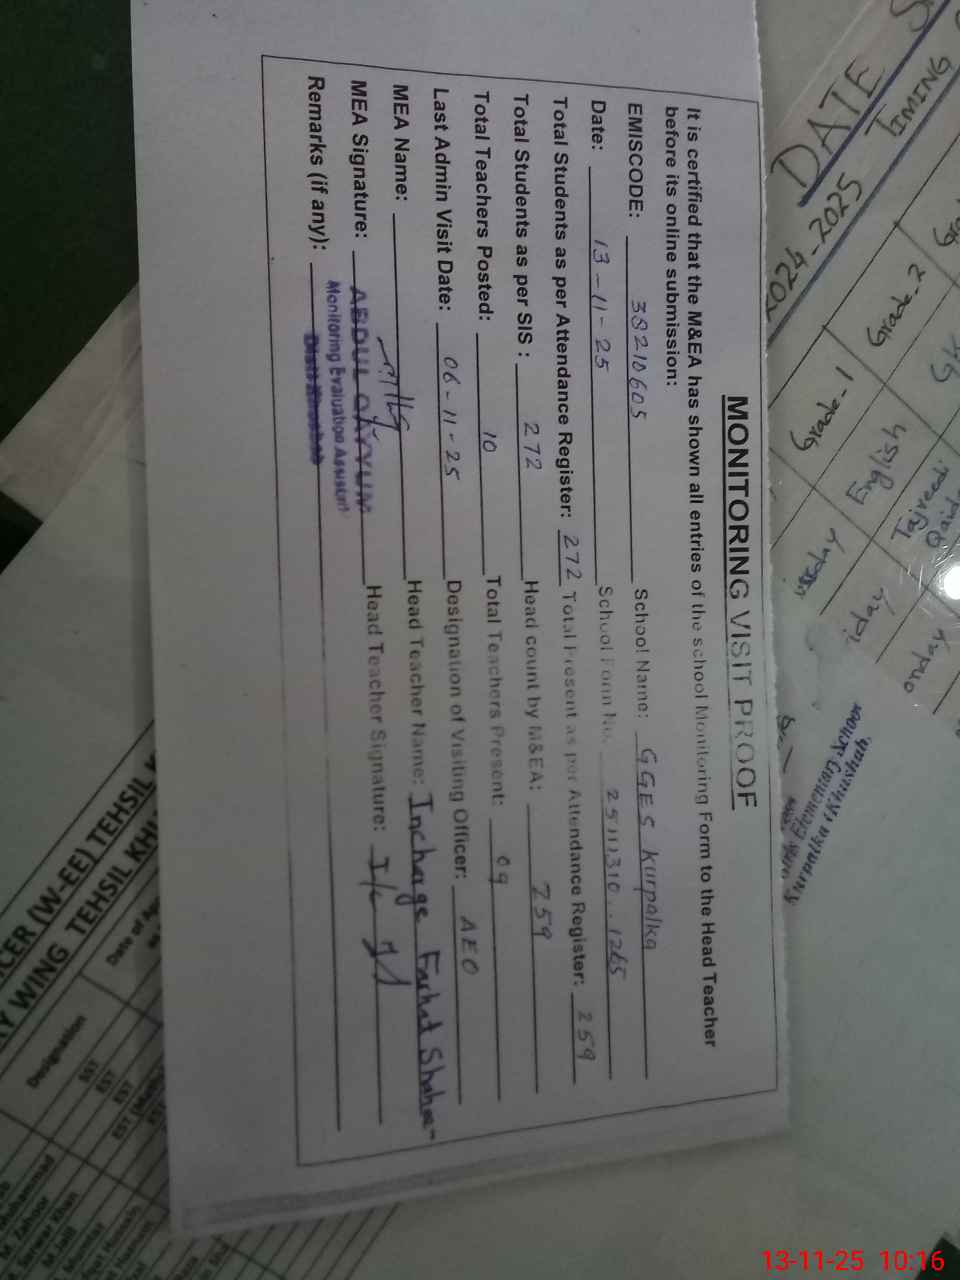 MONITORING VISIT PROOF
It is certified that the M&EA has shown all entries of the school Monitoring Form to the Head Teacher
before its online submission:
EMISCODE: 38210605 School Name: GGES Kurpalka
Date: 13-11-25 School Form No.
Total Students as per Attendance Register: 272 Total Present as per Attendance Register: 259
Total Students as per SIS : 272 Head count by M&EA: 259
Total Teachers Posted: 10 Total Teachers Present: 09
Last Admin Visit Date: 06-11-25 Designation of Visiting Officer: AEO
MEA Name: Head Teacher Name: Incharge Farhat
MEA Signature: ABDUL QAYYUM Head Teacher Signature: I/c
Monitoring Evaluation Assistant
Remarks (if any):
DATE
TIMING
2024-2025
Grade-2
Grade-1
English
Tajreedi
iday
onday
Elementary School
CER (W-EE) TEHSIL
WING TEHSIL
Date of
Designation
EST
EST
EST
M. Zahoor
M. Sarwar Khan
M. Jalil
13-11-25 10:16